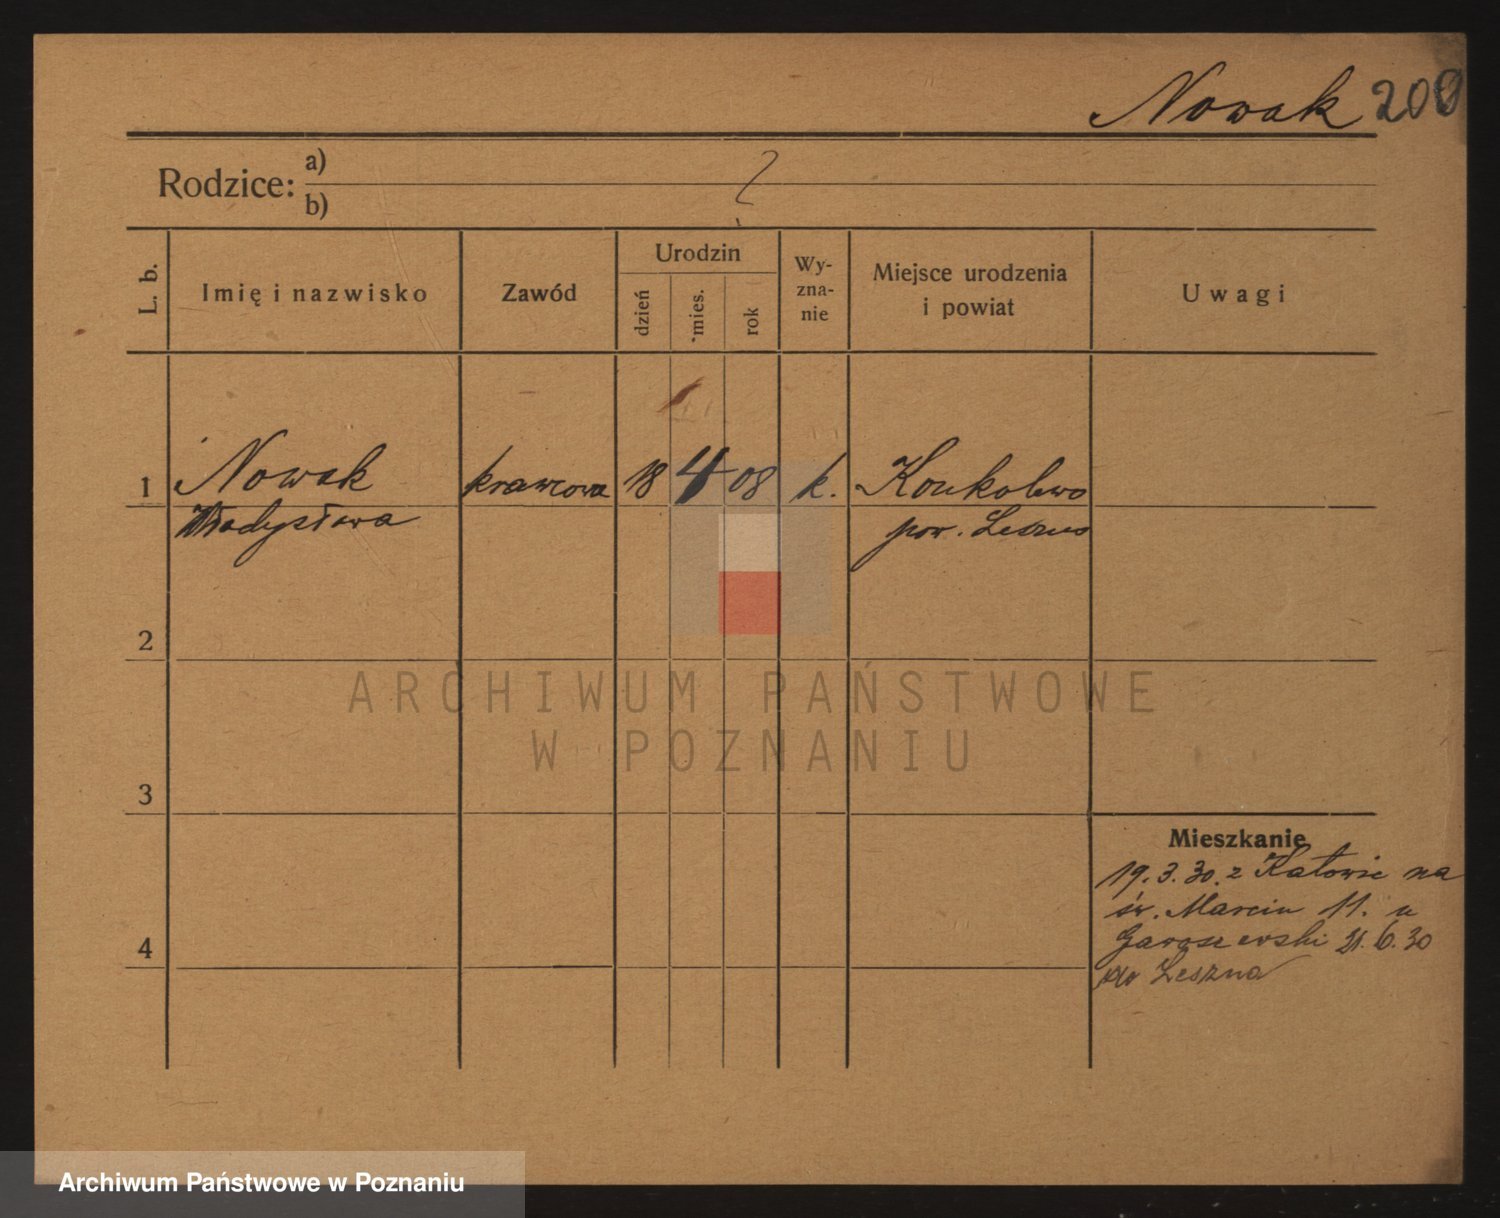 Nowak 200
Rodzice: a)
b)
?
L. b.
Imię i nazwisko
Zawód
Urodzin
dzień
mies.
rok
Wy-
zna-
nie
Miejsce urodzenia
i powiat
Uwagi
1 Nowak krawcowa 18 4 08 k. Konkolewo
Władysława pow. Leszno
2
ARCHIWUM PAŃSTWOWE
W POZNANIU
3
Mieszkanie
19.3.30. z Katowic na
św. Marcin 11. u
21.6.30
4
do Leszna
Archiwum Państwowe w Poznaniu